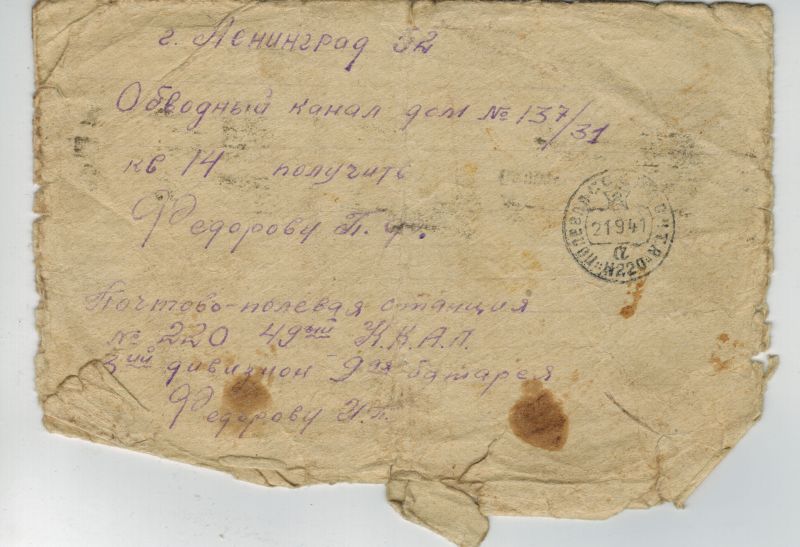 г. Ленинград 52
Обводный канал дом № 137/31
кв 14 получить
Федорову П. Ф.
21 9 41
N220
Почтово-полевая станция
№ 220 49ый К.К.А.П.
3ий дивизион 9ая батарея
Федорову И.П.